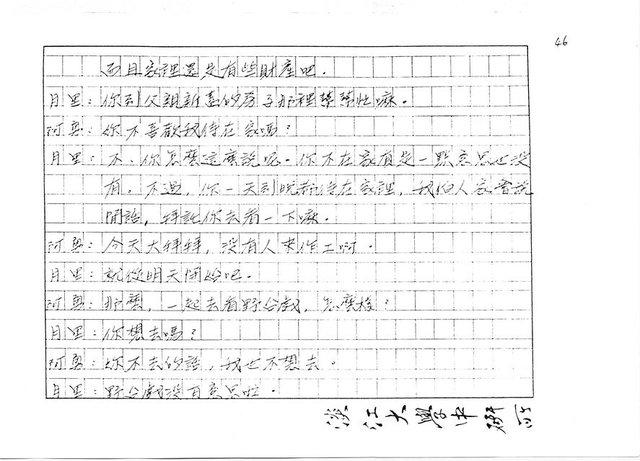 46
而且家裡還是有些財產吧。
月里：你到父親新蓋的房子那裡幫幫忙嘛。
阿勇：你不喜歡我待在家嗎？
月里：不，你怎麼這麼說呢。你不在家有是一點意思也沒
有。不過，你一天到晚都待在家裡，我怕人家會說
閒話，拜託你去看一下嘛。
阿勇：今天大拜拜，沒有人來作工啊。
月里：就從明天開始吧。
阿勇：那麼，一起去看野台戲，怎麼樣？
月里：你想去嗎？
阿勇：你不去的話，我也不想去。
月里：野台戲沒有意思啦。
淡江大學中研所